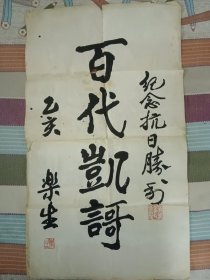 紀念抗日勝利
百代凱謌
乙亥
樂生